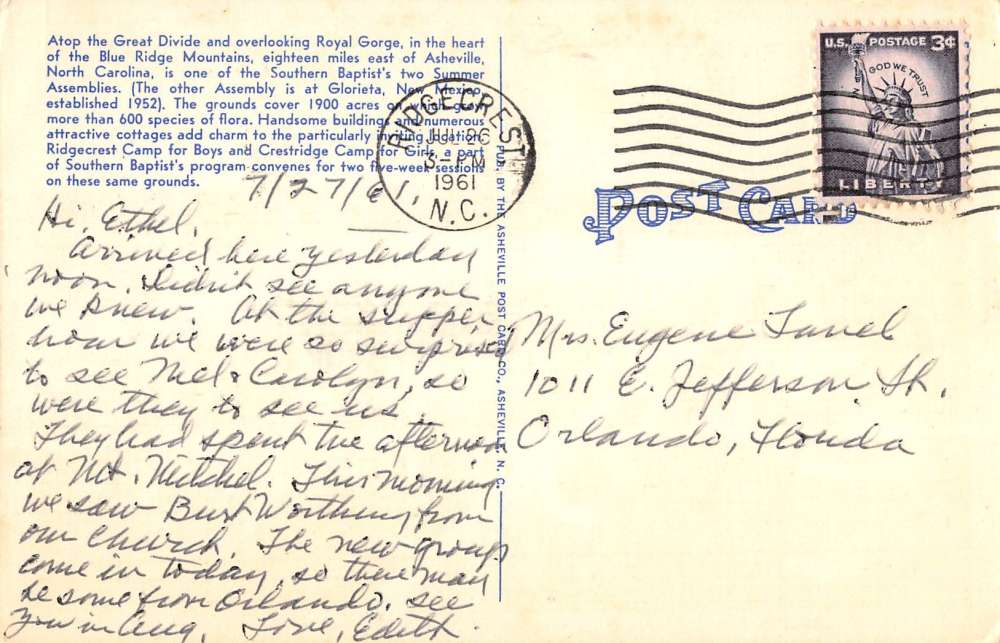 Atop the Great Divide and overlooking Royal Gorge, in the heart
of the Blue Ridge Mountains, eighteen miles east of Asheville,
North Carolina, is one of the Southern Baptist's two Summer
Assemblies. (The other Assembly is at Glorieta, New Mexico,
established 1952). The grounds cover 1900 acres on which grow
more than 600 species of flora. Handsome buildings and numerous
attractive cottages add charm to the particularly inviting location.
Ridgecrest Camp for Boys and Crestridge Camp for Girls, a part
of Southern Baptist's program convenes for two five-week sessions
on these same grounds.
7/27/61,
Hi, Ethel,
Arrived here yesterday
noon. Didn't see anyone
we knew. At the supper
hour we were so surprised
to see Mel & Carolyn, so
were they to see us.
They had spent the afternoon
at Mt. Mitchel. This morning
we saw Burt from
our Church. The new group
come in today, so there may
be some from Orlando. See
you in Aug. Love, Edith.
PUB. BY THE ASHEVILLE POST CARD CO., ASHEVILLE, N. C.
RIDGECREST
JUL 26
3-PM
1961
N.C.
U.S. POSTAGE 3¢
IN GOD WE TRUST
LIBERTY
POST CARD
Mrs. Eugene
1011 E. Jefferson St.
Orlando, Florida